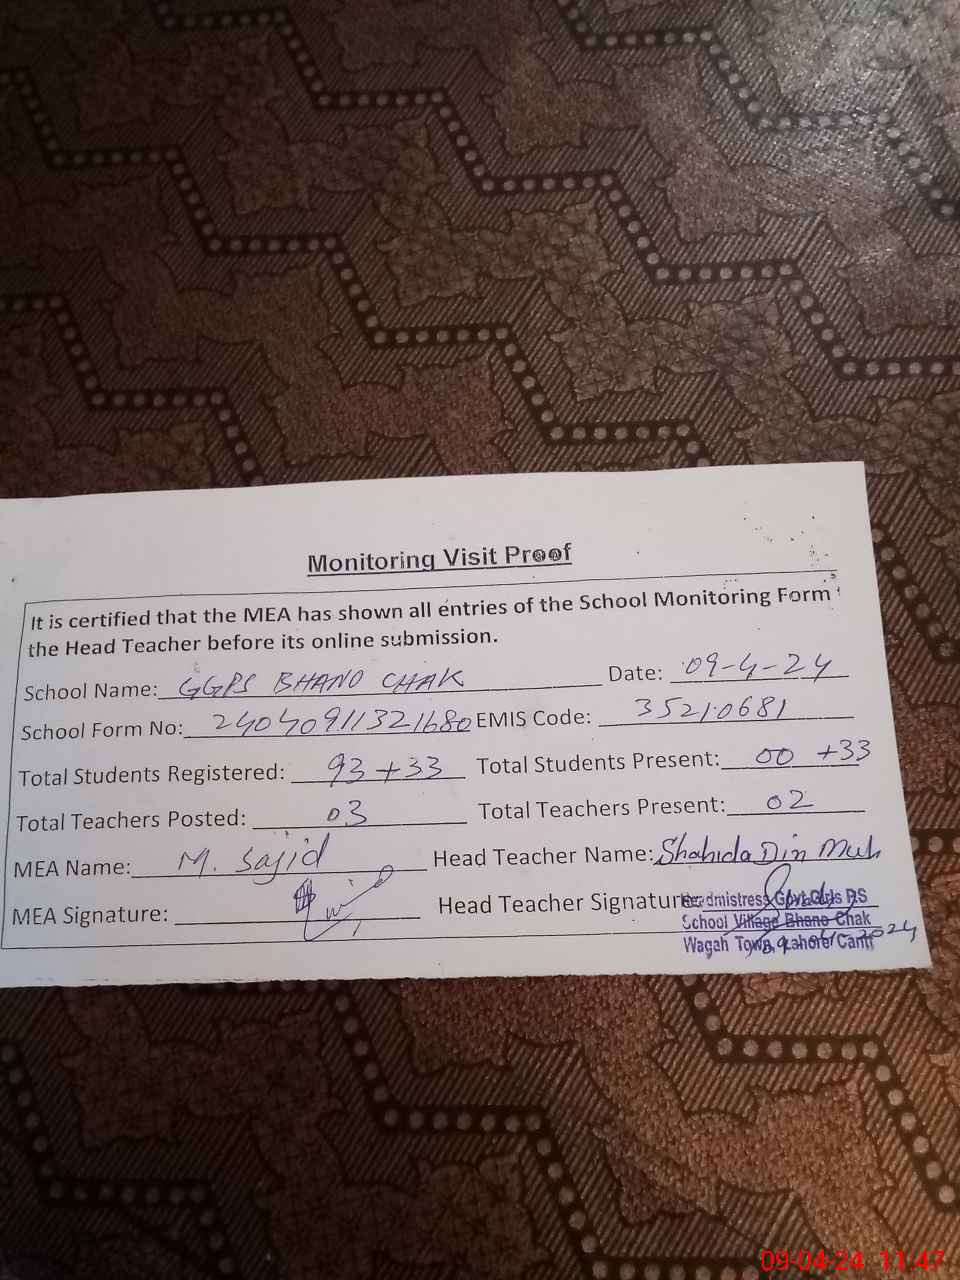 Monitoring Visit Proof
It is certified that the MEA has shown all entries of the School Monitoring Form
the Head Teacher before its online submission.
School Name: GGPS BHANO CHAK Date: 09-4-24
School Form No: 24040911321680 EMIS Code: 35210681
Total Students Registered: 93 +33 Total Students Present: 00 +33
Total Teachers Posted: 03 Total Teachers Present: 02
MEA Name: M. Sajid Head Teacher Name: Shahida Din Muh
MEA Signature: Head Teacher Signature:
Headmistress Govt. Girls PS
School Village Bhano Chak
Wagah Town, Lahore Cantt
09-04-24 11:47